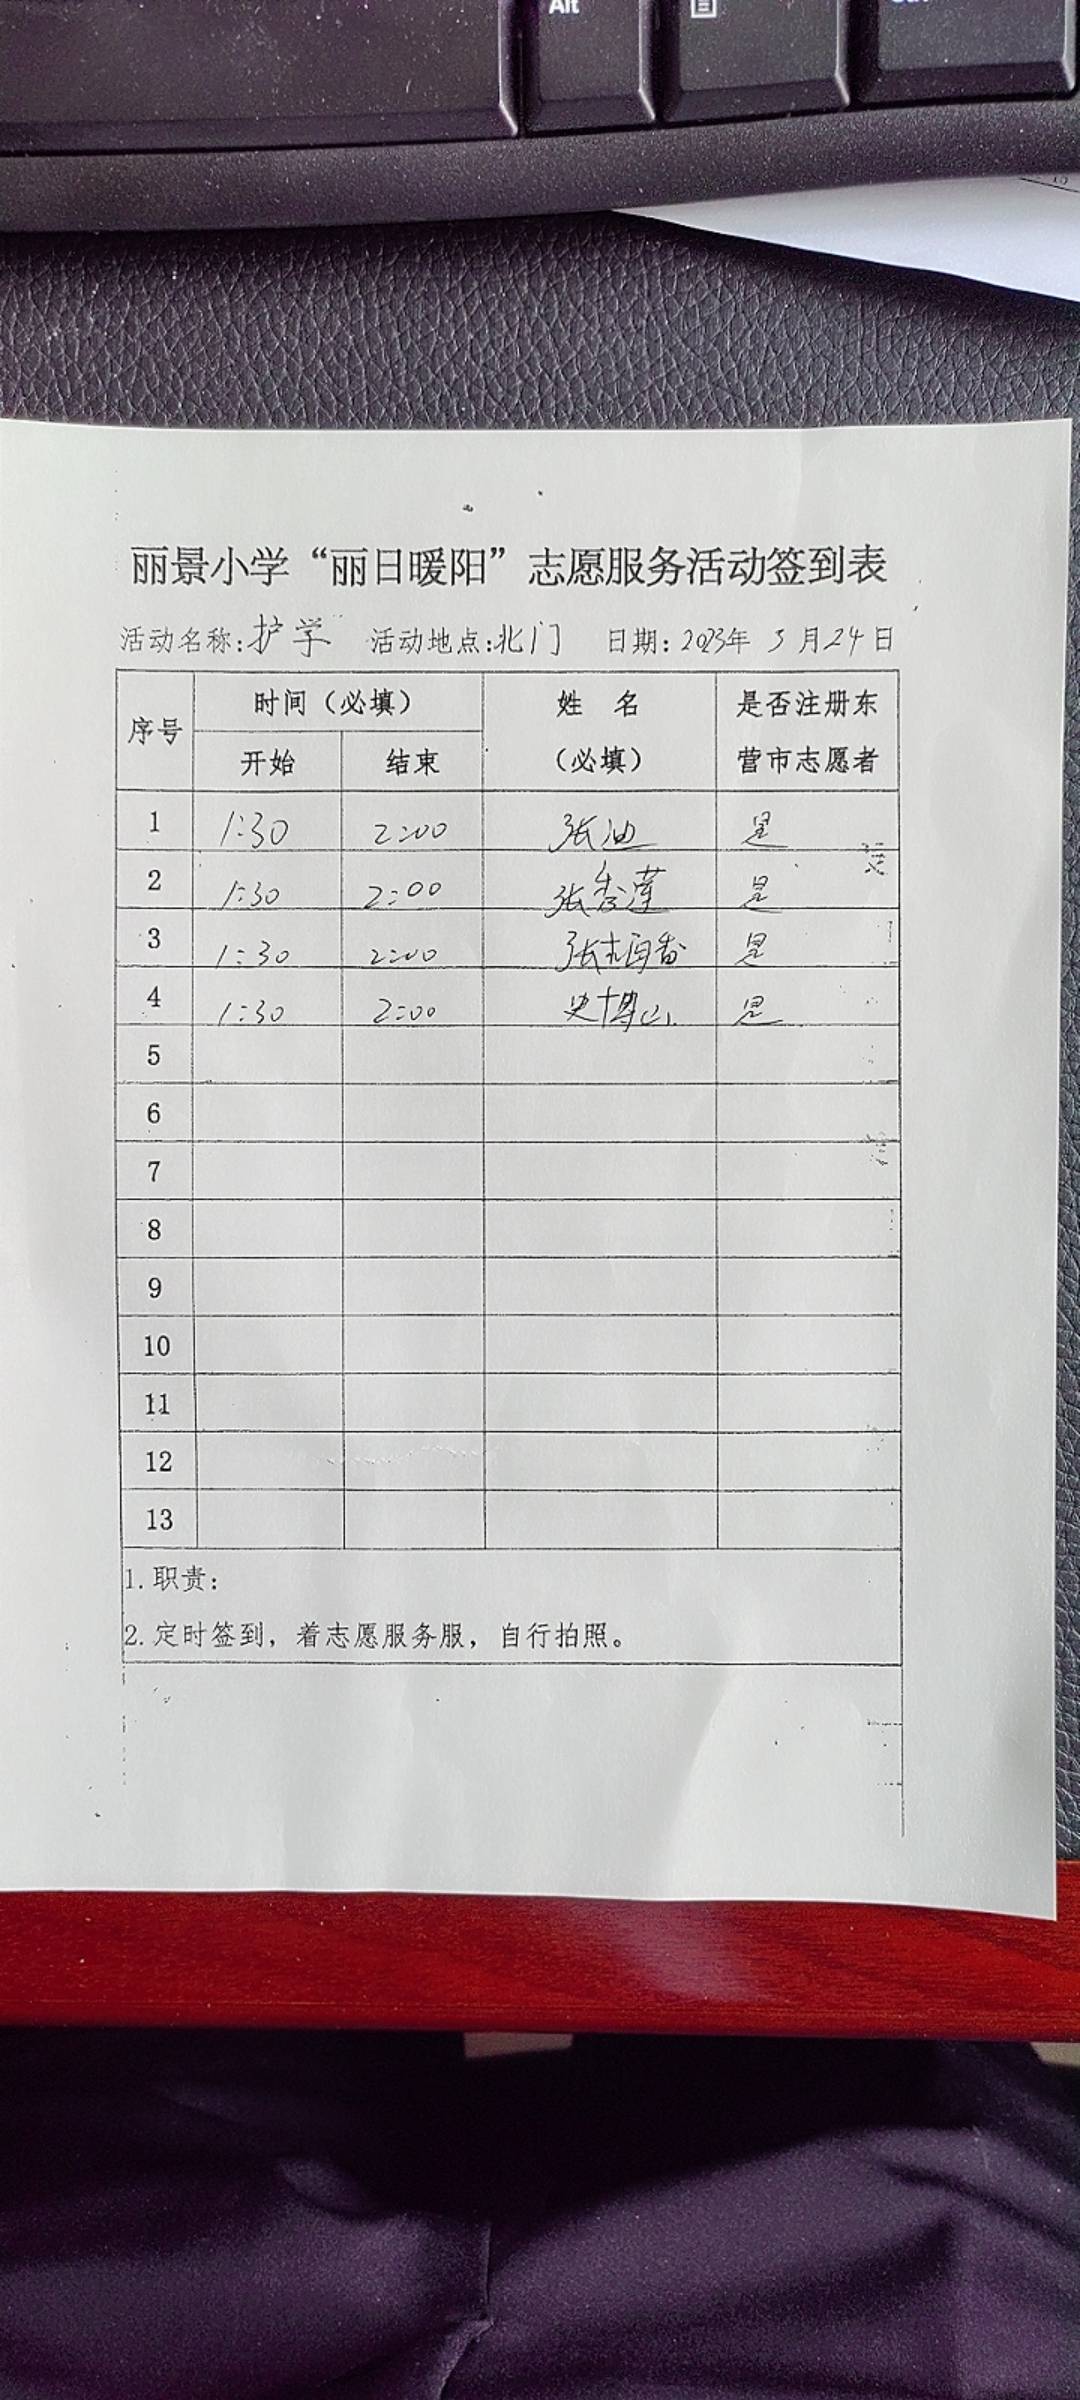 Alt
丽景小学“丽日暖阳”志愿服务活动签到表
活动名称:护学 活动地点:北门 日期:2023年 3月24日
序号 时间（必填） 姓 名 是否注册东
开始 结束 （必填） 营市志愿者
1 1:30 2:00 张迪 是
2 1:30 2:00 张秀莲 是
3 1:30 2:00 张 香 是
4 1:30 2:00 史博山 是
5
6
7
8
9
10
11
12
13
1.职责:
2.定时签到，着志愿服务服，自行拍照。